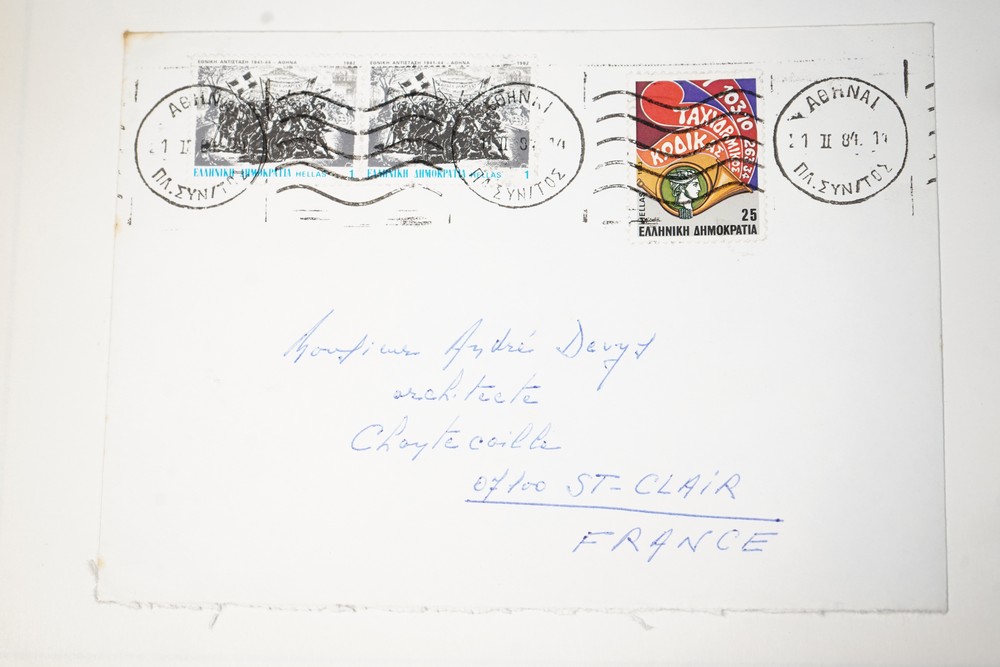 ΕΘΝΙΚΗ ΑΝΤΙΣΤΑΣΗ 1941-44 - ΑΘΗΝΑ 1982
ΕΛΛΗΝΙΚΗ ΔΗΜΟΚΡΑΤΙΑ HELLAS 1
ΕΘΝΙΚΗ ΑΝΤΙΣΤΑΣΗ 1941-44 - ΑΘΗΝΑ 1982
ΕΛΛΗΝΙΚΗ ΔΗΜΟΚΡΑΤΙΑ HELLAS 1
ΑΘΗΝΑΙ
1 II
ΠΛ.ΣΥΝ/ΤΟΣ
ΑΘΗΝΑΙ
II 84. 14
ΠΛ.ΣΥΝ/ΤΟΣ
103.10
26334
ΤΑΧΙΔΡΟΜΙΚΟΣ
ΚΩΔΙΚΑΣ
HELLAS
25
ΕΛΛΗΝΙΚΗ ΔΗΜΟΚΡΑΤΙΑ
ΑΘΗΝΑΙ
21 II 84. 14
ΠΛ.ΣΥΝ/ΤΟΣ
Monsieur André Davys
architecte
07100 ST-CLAIR
FRANCE